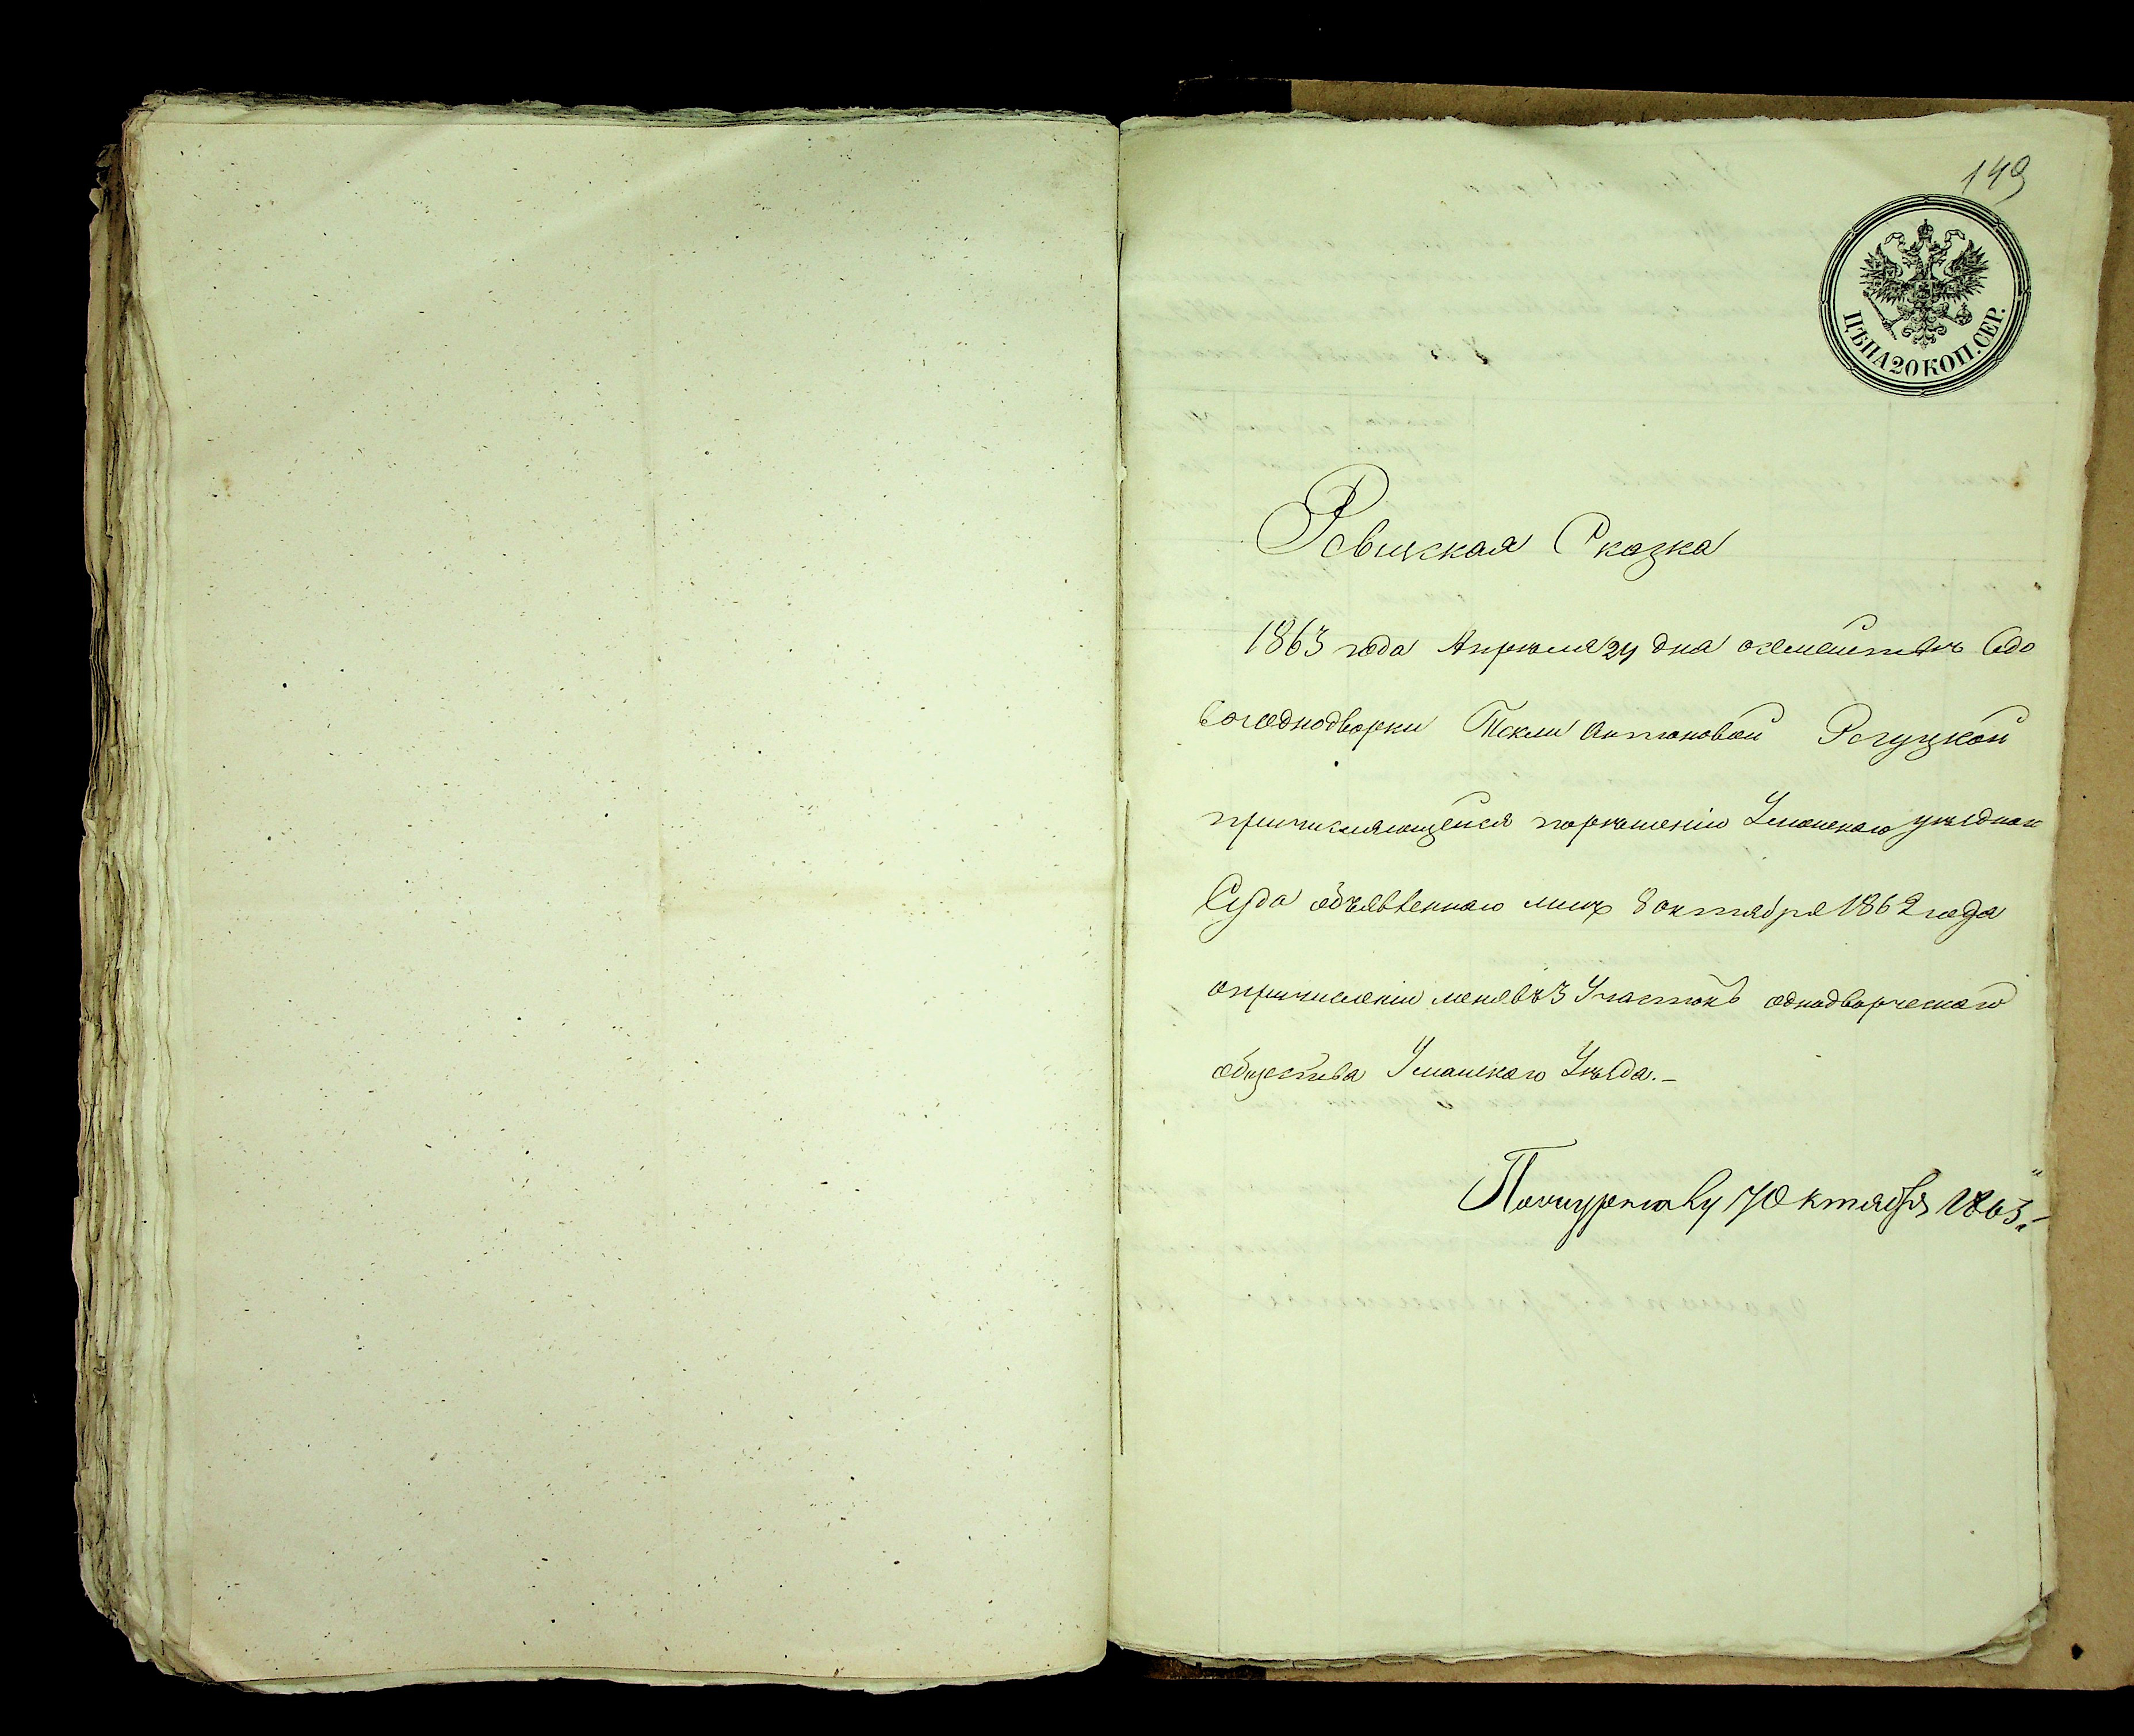 149
ЦѢНА 20 КОП. СЕР.
Ревизская Сказка
1863 года Апреля 24 дна осемействѣ Вдо
вы однодворки Текли Антоновой Регуцкой
причисляющейся порѣшенію Уманскаго уѣзднаго
Суда объявленнаго мнѣ 8 октября 1862 года
опричисленіи меня въ 3 Участокъ однодворческаго
общества Уманскаго Уѣзда.-
7 Октября 1863